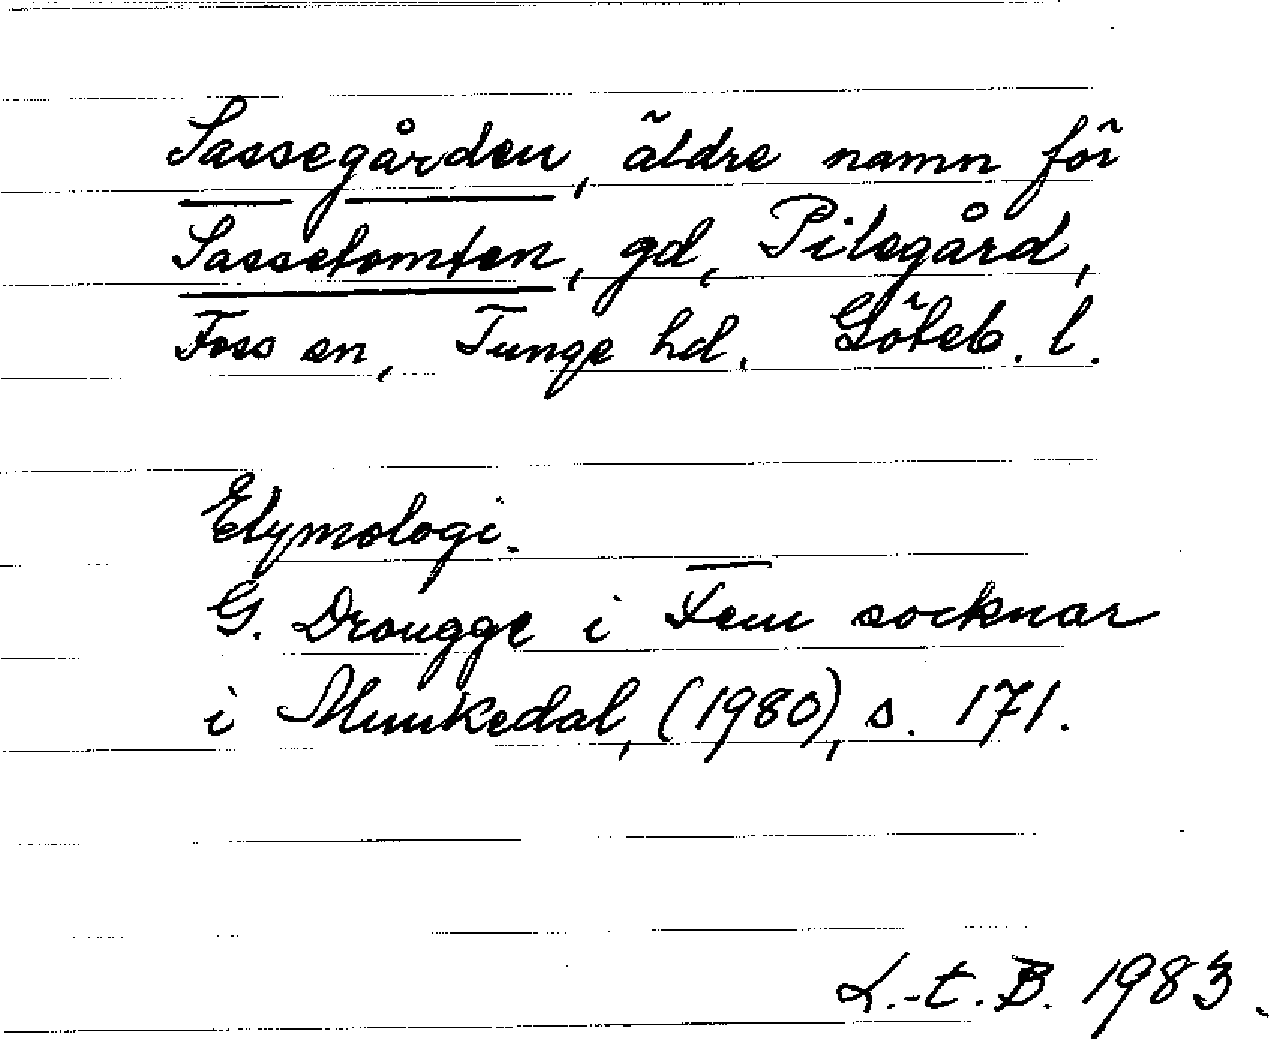 Sassegården, äldre namn för
Sassetomten, gd, Pilegård,
Foss sn, Tunge hd. Göteb. l.
Etymologi.
G. Drougge i Fem socknar
i Munkedal, (1980), s. 171.
L.-t. B. 1983.